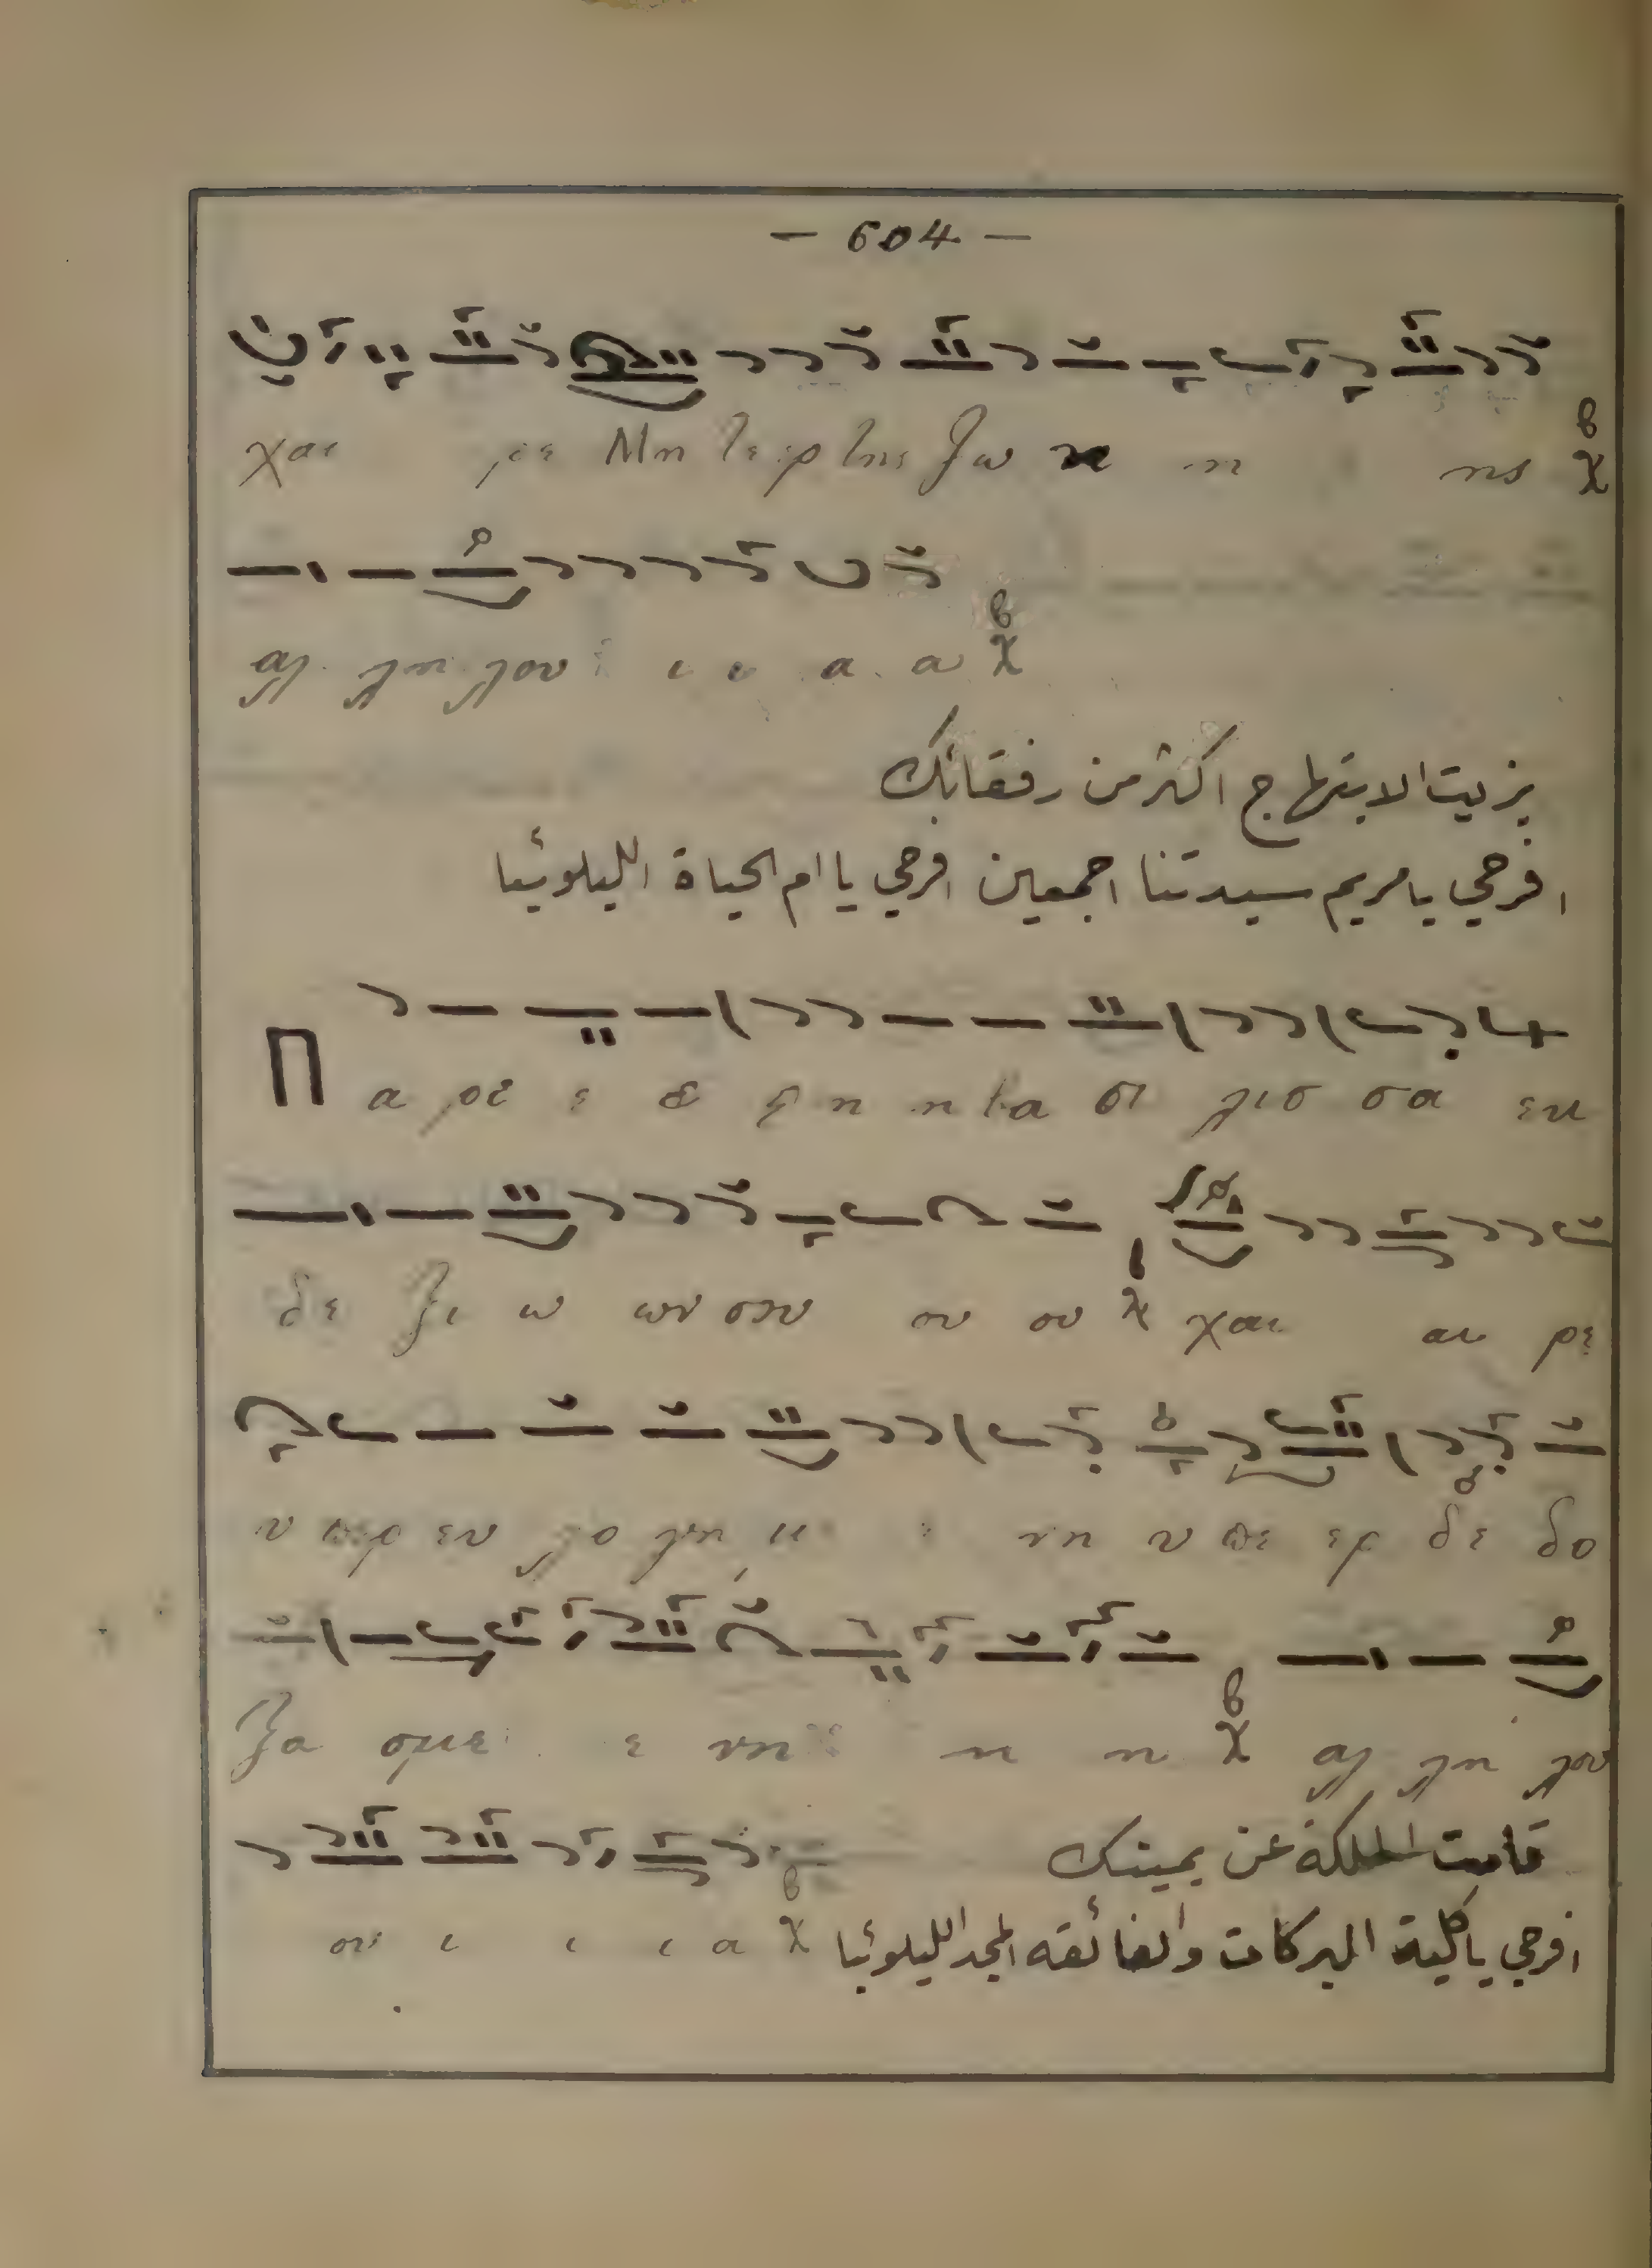 - 604 -
χαι ρε Μη τερ της ζω η ης
αλ λη λου ι ι α α
بزيت الابتهاج اكثر من رفقائك
افرحي يا مريم سيدتنا اجمعين افرحي يا ام الحياة الليلوئيا
Π α ρε ε ε ςη η τα σι λισ σα εκ
δε ξι ω ων σου ου ου χαι αι ρε
υ περ ευ λο γη με ε νη υ πε ερ δε δο
ξα σμε ε νη η η αλ λη λου
قامت الملكة عن يمينك
ου ι ι ι α افرحي يا كلية البركات والفائقه المجد الليلوئيا